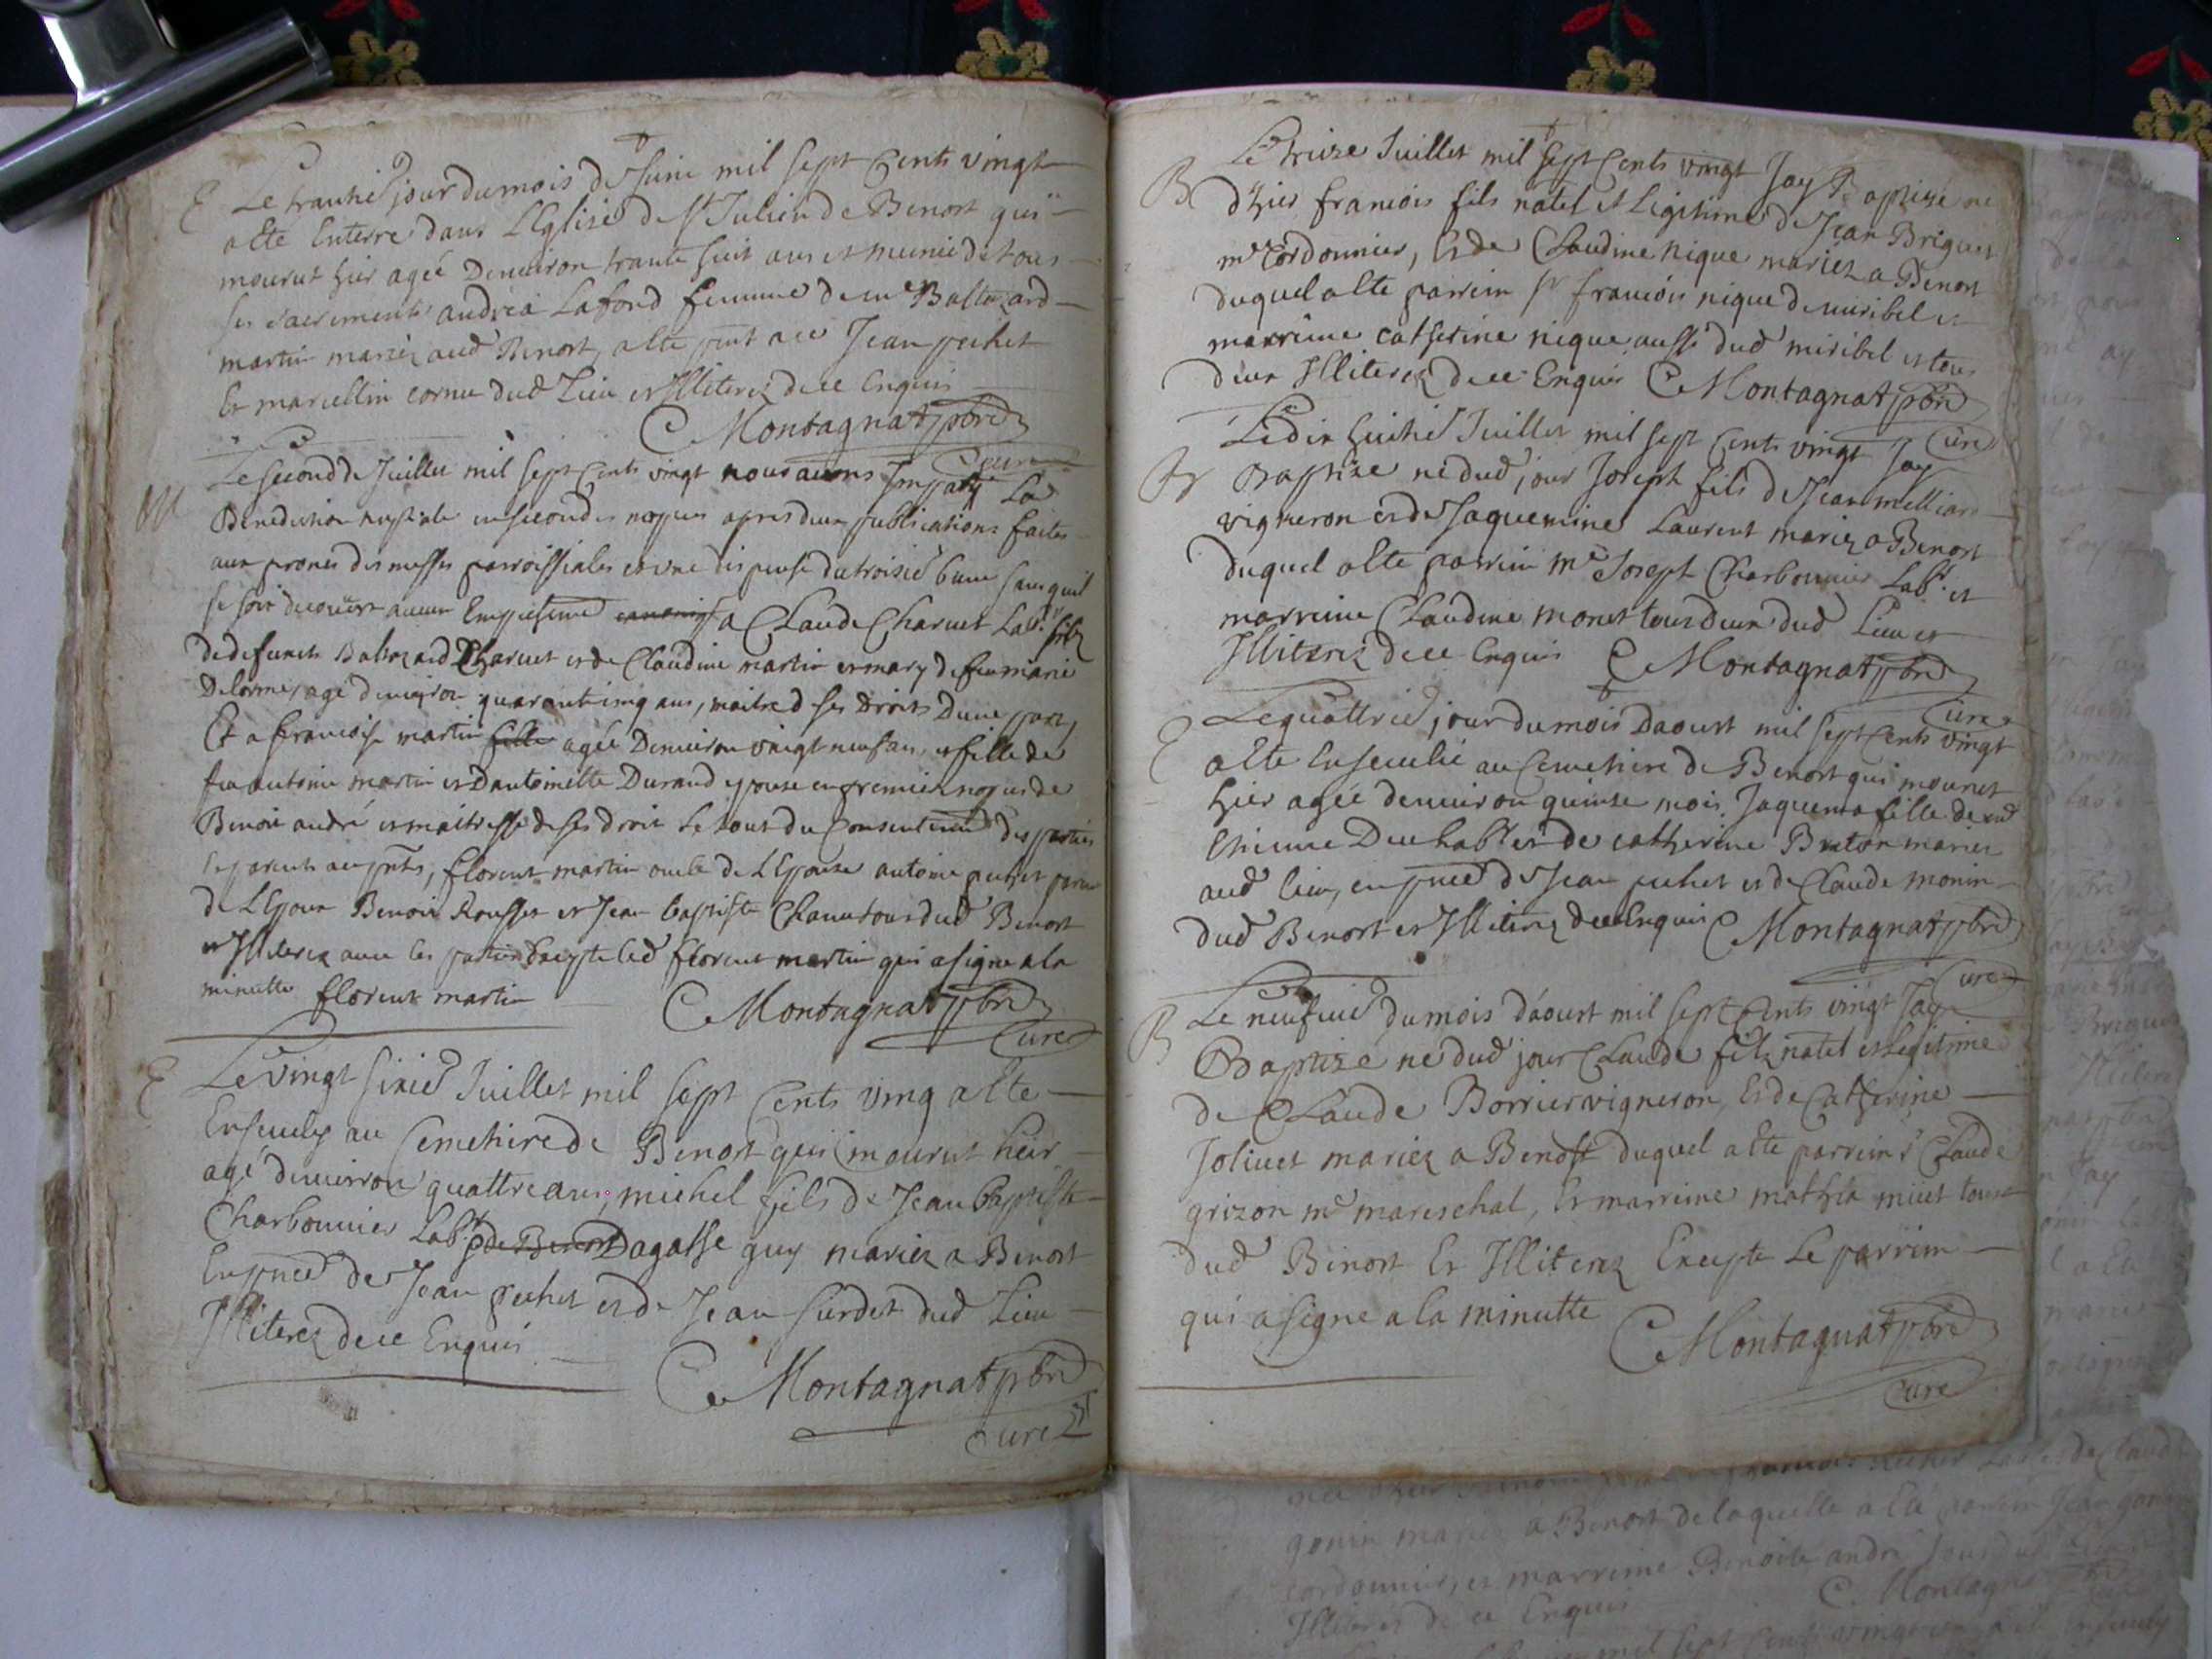 E Le trantie jour du mois de Juin mil sept Cents vingt
a Eté Enterre dans LEglise de St Julien de Benost qui
mourut hier agée Denuiron trante huit ans et munie de tous
ses sacrements andréa Lafond femme de me Baltazard
martin mariez aud Benost, a Eté pnt a ce Jean pechet
Et marcellin cornu dud Lieu et Illiterez de ce Enquis
C Montagnat pbre
Cure
M Le second de Juillet mil sept Cents vingt nous auons Imparty La
Benediction nuptiale en secondes nopces apres deux publications faites
aux prones des messes parroissiales et une dispense du troisie banc sans quil
se soit decouuert aucun Empechement a Claude Charuet Labr. filz
de defuncts Baltazard Charuet et de Claudine martin et mary de feu marie
Delorme, agé denuiron quarantecinq ans, maitre d ses Droits Dune part,
Et a francoise martin fille agée Denuiron vingt neuf an, et fille de
feu antoine martin et Dantoinette Durand epouse en premier nopces de
Benoit andré et maitresse de ses droit Le tout du Consentemt des parties
le parents aux pnts, florent martin oncle de LEpouse antoine pechet
de LEpoux Benoit Rousset et Jean baptiste Chanu tous dud Benost
et Illiterez auec les parties Excepte led florent martin qui a signe a la
minutte florent martin C Montagnat pbre
Cure
E Le vingt sixie Juillet mil sept Cents ving a Eté
Enseuely au Cemetiere de Benost qui mourut hier
agé denuiron quattre ans, michel fils de Jean Baptiste
Charbonnier Labr. de Benost Dagathe guy mariez a Benost
En pnce de Jean pechet et de Jean Surdet dud Lieu
Illiterez de ce Enquis
C Montagnat pbre
Cure
B Le treize Juillet mil sept Cents vingt Jay Baptizé ne
d'hier francois fils natel et Legitime de Jean Briguet
me Cordonnier, Et de Claudine nique mariez a Benost
duquel a Eté parrein sr francois nique de miribel et
marreine catherine nique aussi dud miribel et tous
deux Illiterez de ce Enquis C Montagnat pbre
Cure
B Le dix huitie Juillet mil sept Cents vingt Jay
Baptize ne dud jour Joseph fils de Jean milliard
vigneron et de Jaquemine Laurent mariez a Benost
duquel a Eté parrein me Joseph Charbonnier Labr. et
marreine Claudine monet tous deux dud Lieu et
Illiterez de ce Enquis C Montagnat pbre
Cure
E Le quattrie jour du mois Daoust mil sept Cents vingt
a Eté Enseuelie au Cemetiere de Benost qui mourut
hier agée denuiron quinze mois Jaquema fille de
Etienne Duc habt et de catherine Breton mariez
aud lieu, en pnce de Jean pechet et de Claude monin
dud Benost et Illiterez de ce Enquis C Montagnat pbre
Cure
B Le neufuie du mois d'aoust mil sept Cents vingt Jay
Baptize ne dud jour Claude filz natel et Legitime
de Claude Borrier vigneron, Et de Catherine
Joliuet mariez a Benost duquel a Eté parrein Claude
grizon me mareschal, Et marreine mathia miuet tous
dud Benost Et Illiterez Excepte Le parrein
qui a signe a la minutte C Montagnat pbre
Cure
gonin mariez a Benost de laquelle a Eté parrein Jean gonin
cordonnier, et marreine Benoite andre tous dud
Illiteres de ce Enquis C. Montagnat